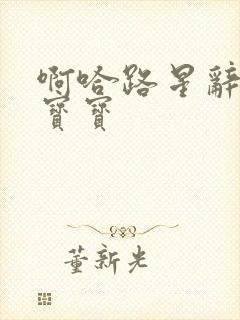 啊哈路星辭
寶寶
董新光